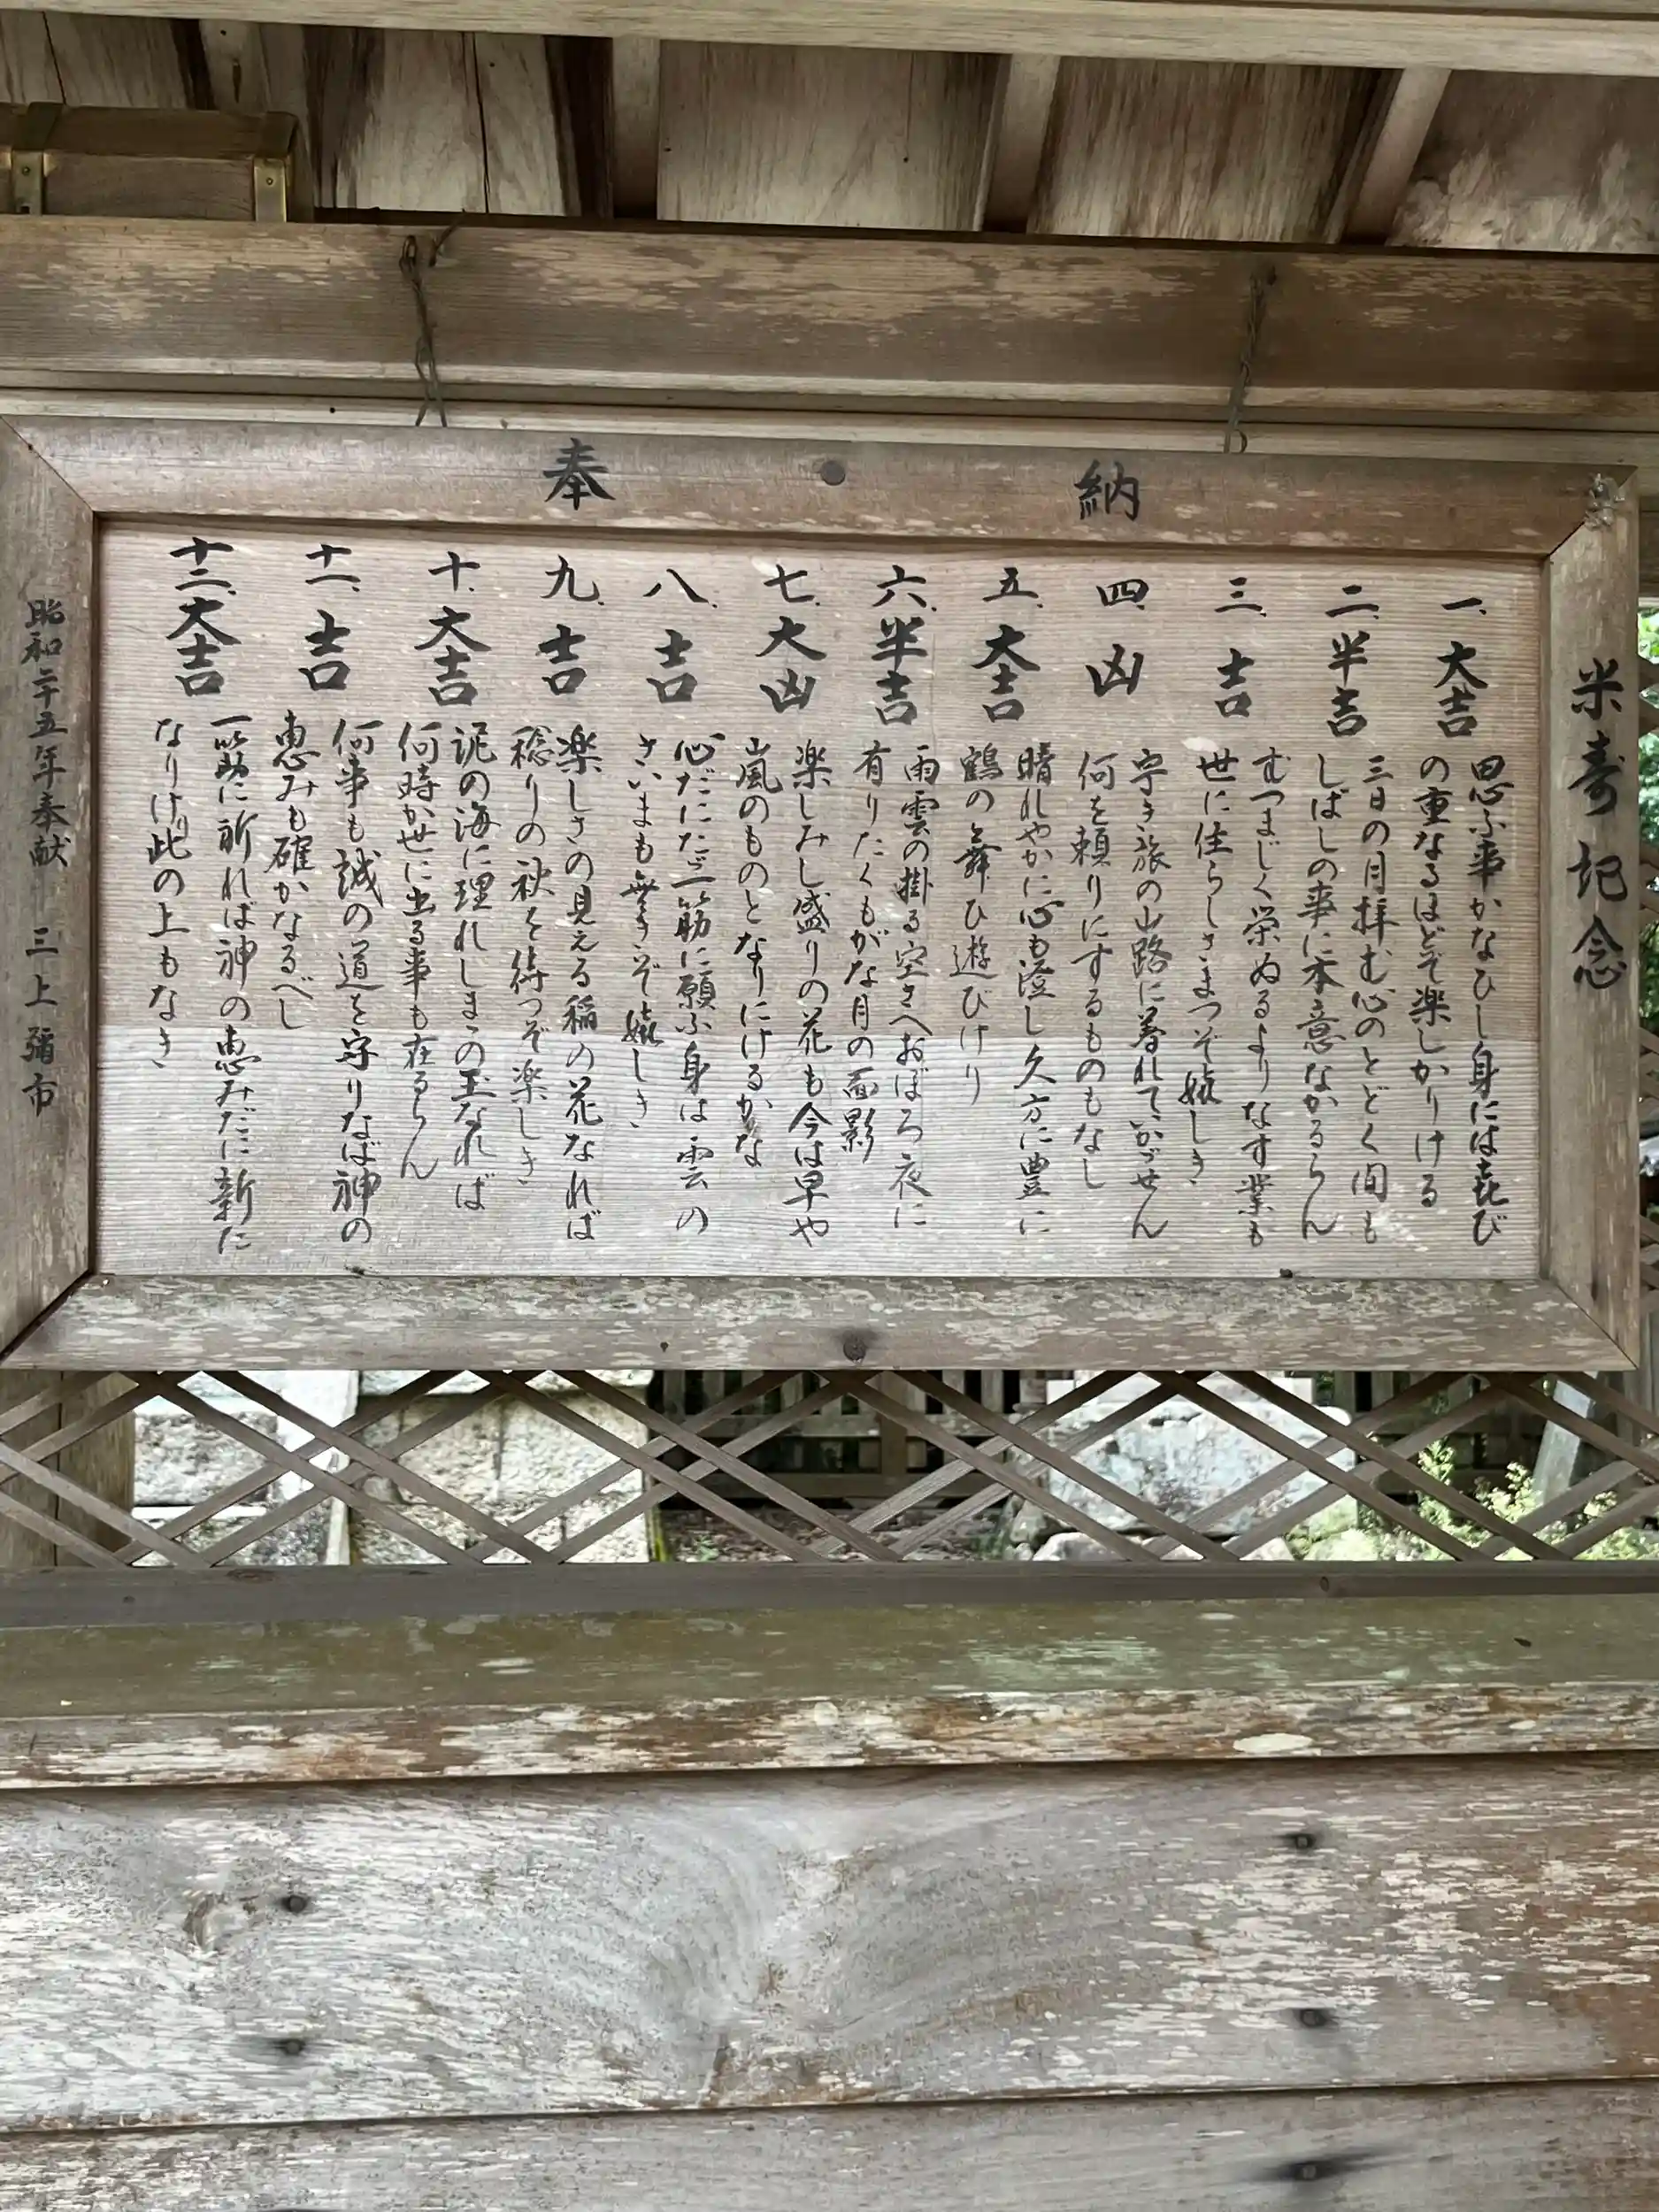 奉納
米寿記念
一、大吉
思ふ事かなひし身には喜び
の重なるほどぞ楽しかりける
二、半吉
三日の月拝む心のとどく間も
しばしの事に本意なかるらん
三、吉
むつまじく栄ぬるよりなす業も
世に住らしさまつぞ嬉しき
四、凶
宇き旅の山路に暮れていかゞせん
何を頼りにするものもなし
五、大吉
晴れやかに心も澄し久方に豊に
鶴の舞ひ遊びけり
六、半吉
雨雲の掛る空さへおぼろ夜に
有りたくもがな月の面影
七、大凶
楽しみし盛りの花も今は早や
嵐のものとなりにけるかな
八、吉
心だにたゞ一筋に願ふ身は雲の
さいまも無きぞ嬉しき
九、吉
楽しさの見える稲の花なれば
稔りの秋を待つぞ楽しき
十、大吉
泥の海に埋れしまゝの玉なれば
何時か世に出る事も在るらん
十一、吉
何事も誠の道を守りなば神の
恵みも確かなるべし
十二、大吉
一筋に祈れば神の恵みだに新た
なりけり此の上もなき
昭和二十五年奉献 三上彌市